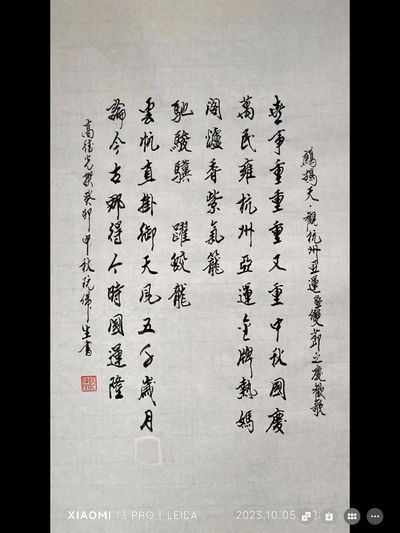 鷓鴣天·觀杭州亞運雙節之慶
喜事重重重又重中秋國慶
萬民雍杭州亞運金牌熱媽
閣爐香紫氣籠
馳駿驥 躍蛟龍
雲帆直掛御天風五千歲月
論今古那得今時國運隆
高德光撰癸卯中秋杭偉生書
XIAOMI 13 PRO | LEICA 2023.10.05